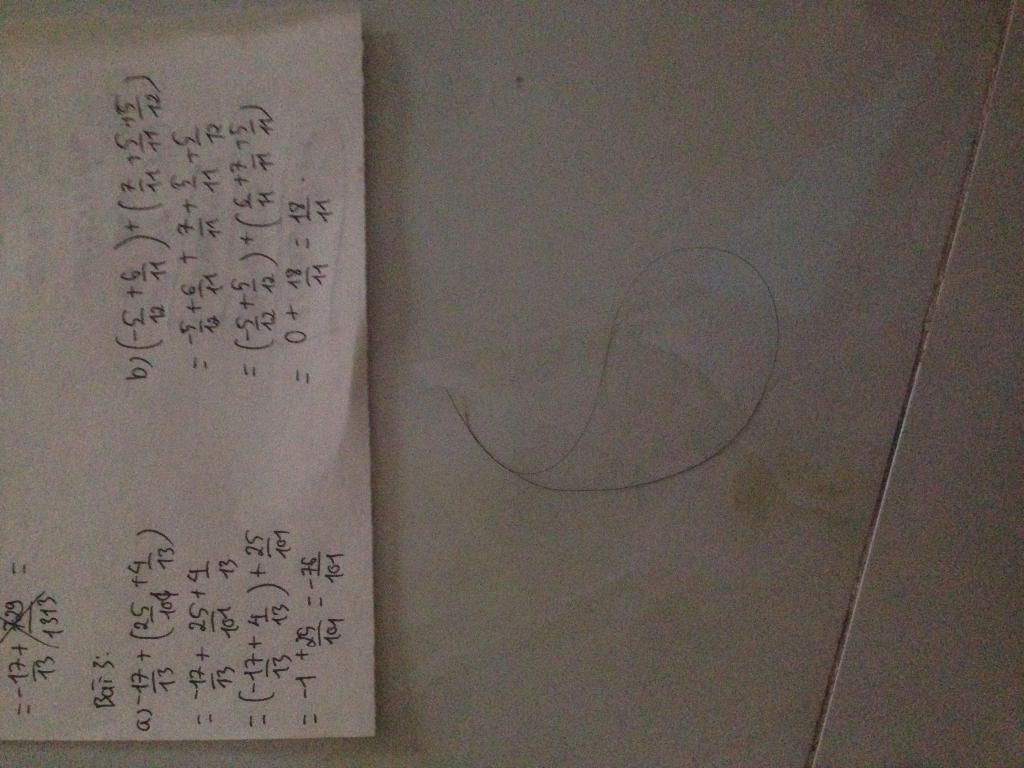 = -17/13 + 729/1313 =
Bài 3:
a) -17/13 + (25/101 + 4/13)
= -17/13 + 25/101 + 4/13
= (-17/13 + 4/13) + 25/101
= -1 + 25/101 = -76/101
b) (-5/12 + 6/11) + (7/11 + 5/11 + 5/12)
= -5/12 + 6/11 + 7/11 + 5/11 + 5/12
= (-5/12 + 5/12) + (6/11 + 7/11 + 5/11)
= 0 + 18/11 = 18/11.